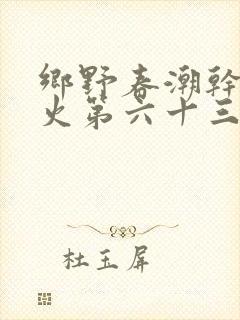 鄉野春潮幹
火第六十三
杜玉屏